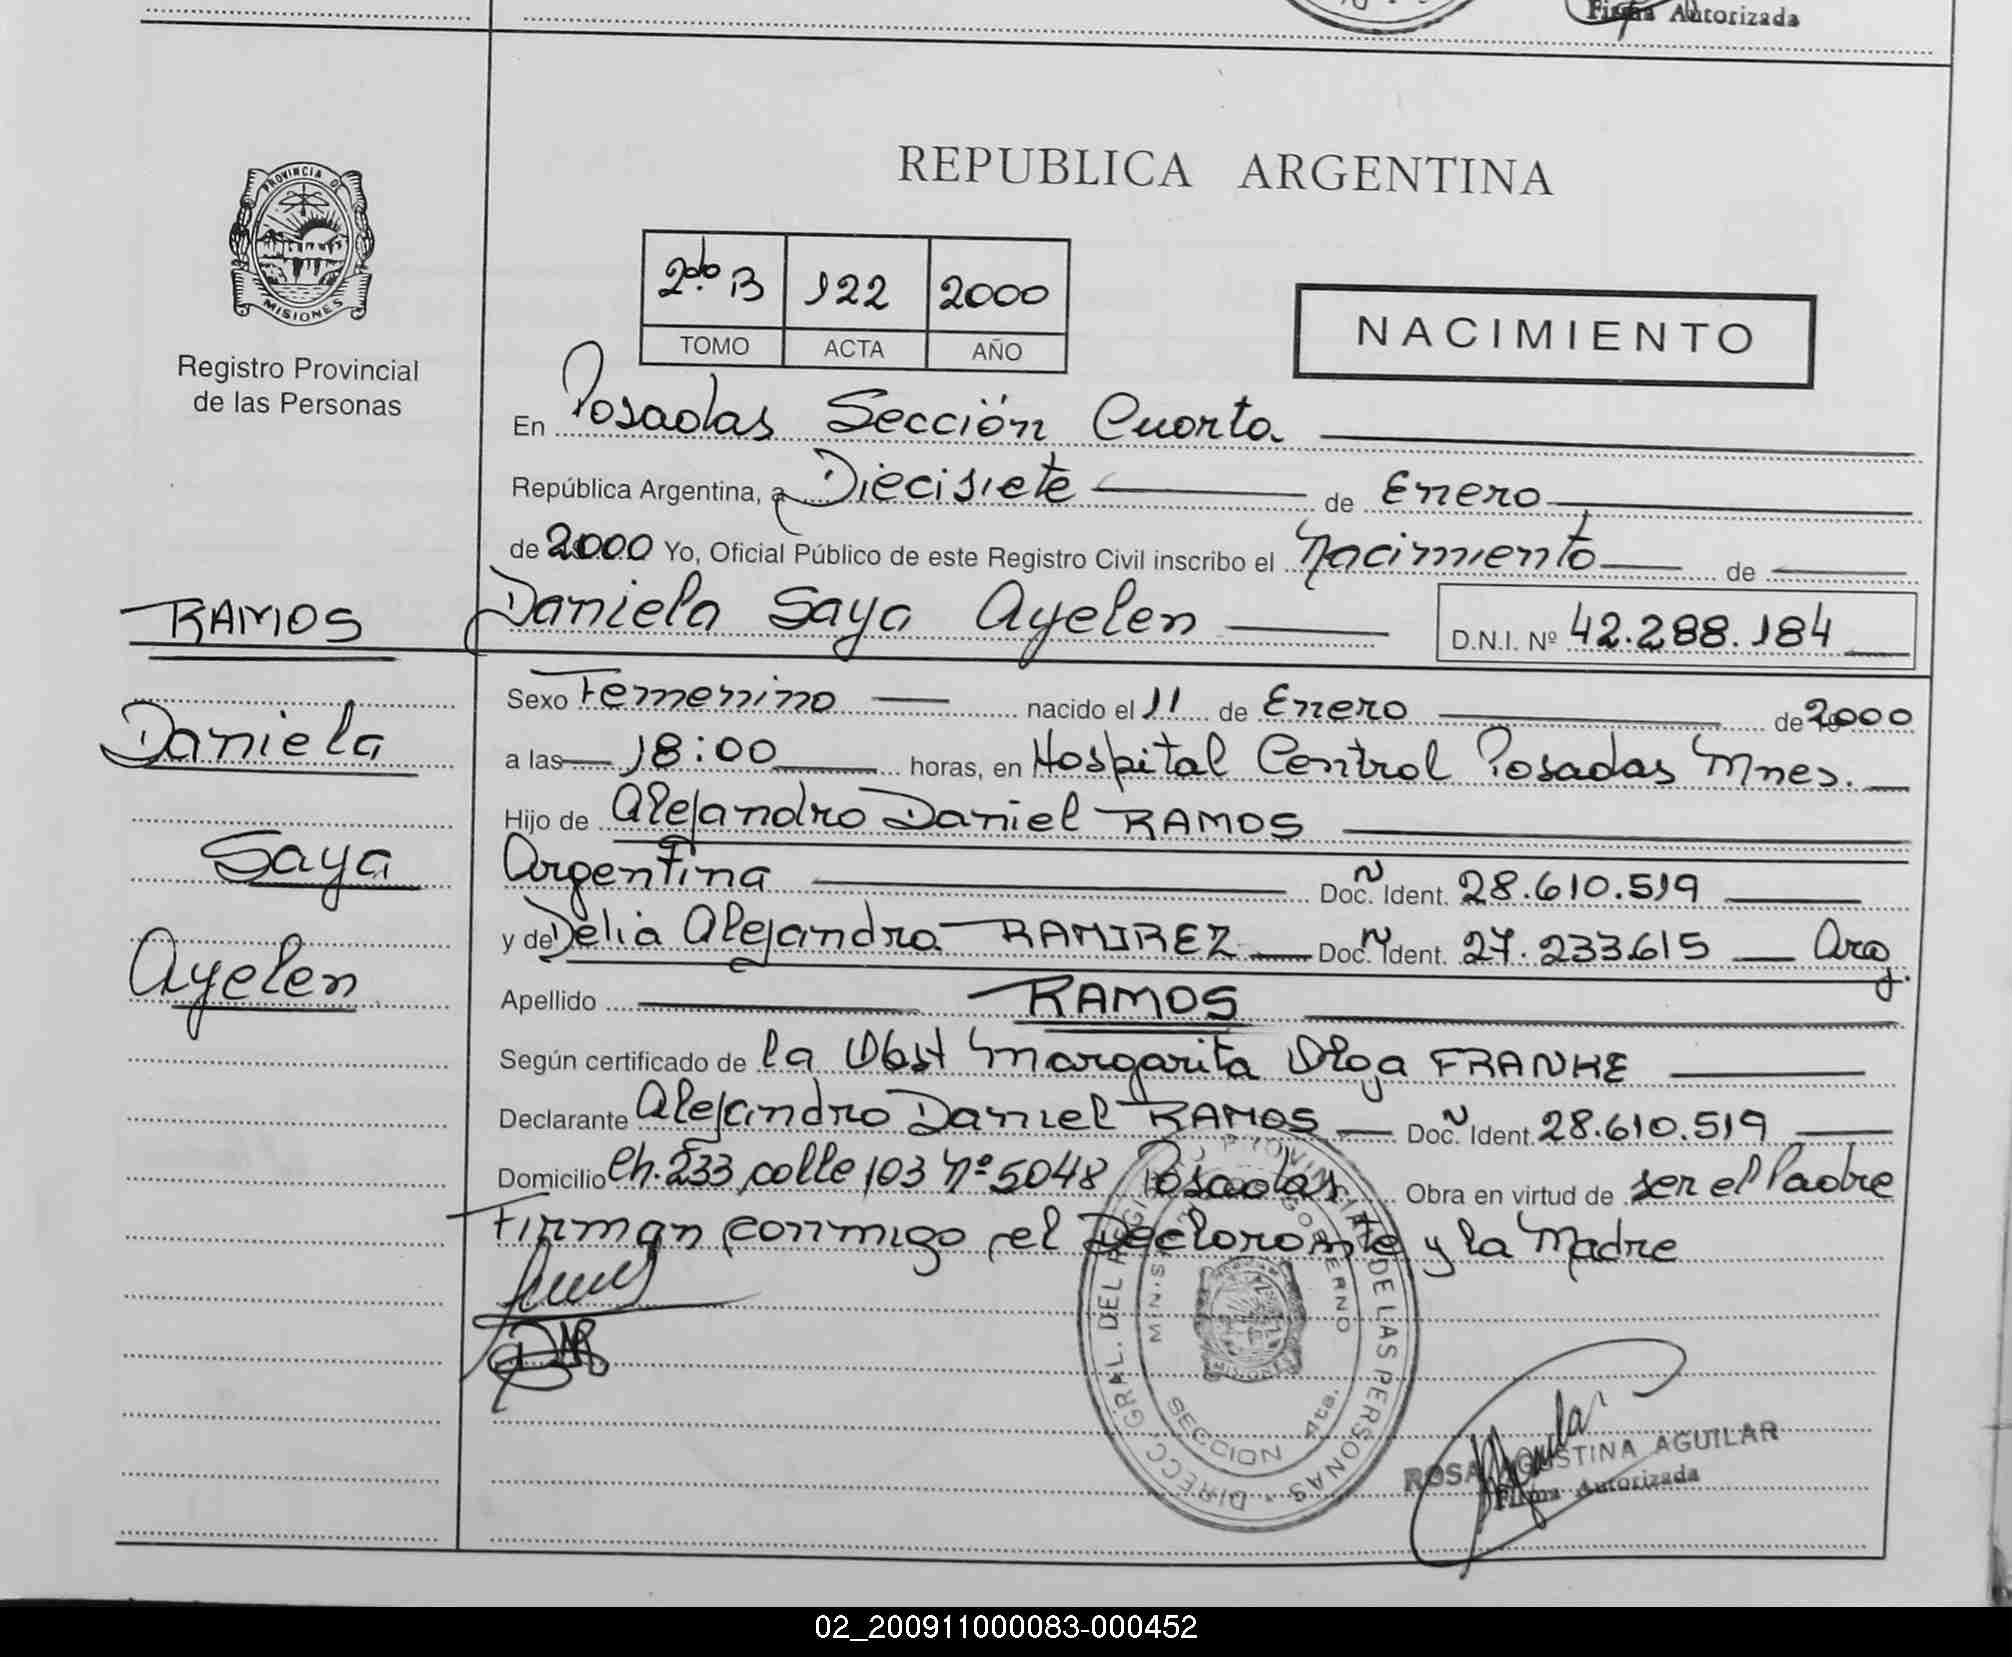 Firma Autorizada
PROVINCIA DE
MISIONES
Registro Provincial
de las Personas
RAMOS
Daniela
Saya
Ayelen
REPUBLICA ARGENTINA
2do. B 122 2000
TOMO ACTA AÑO
NACIMIENTO
En Posadas Sección Cuarta
República Argentina, a Diecisiete de Enero
de 2000 Yo, Oficial Público de este Registro Civil inscribo el Nacimiento de
Daniela Saya Ayelen D.N.I. Nº 42.288.184
Sexo Femenino nacido el 11 de Enero de 2000
a las 18:00 horas, en Hospital Central Posadas Mnes.
Hijo de Alejandro Daniel RAMOS
Argentina Doc. Ident. 28.610.519
y de Delia Alejandra RAMIREZ Doc. Ident. 27.233.615 Arg.
Apellido RAMOS
Según certificado de la Obst Margarita Olga FRANKE
Declarante Alejandro Daniel RAMOS Doc. Ident. 28.610.519
Domicilio Ch. 233 calle 103 Nº 5048 Posadas Obra en virtud de ser el Padre
Firman conmigo el Declarante y la Madre
DIRECC. GRAL. DEL REGISTRO PROVINCIAL DE LAS PERSONAS
MINIST. GOBIERNO
MISIONES
SECCION 4ta.
ROSA AGUSTINA AGUILAR
Firma Autorizada
02_200911000083-000452